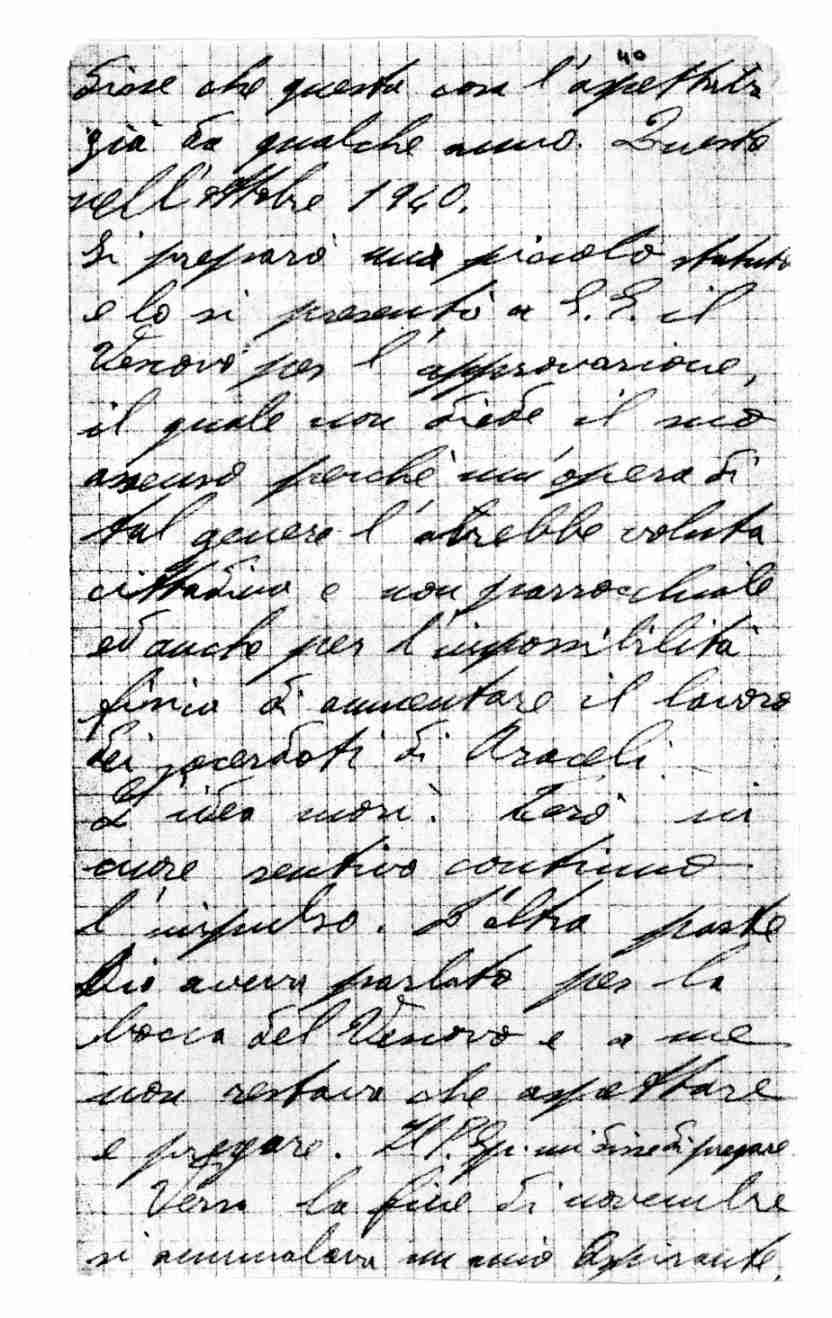 40
disse che questa cosa l'aspettata
già da qualche anno. Questo
nell'ottobre 1940.
Si preparò una piccolo statuto
e lo si presentò a S. E. il
Vescovo per l'approvazione,
il quale non diede il suo
assenso perché un'opera di
tal genere l'avrebbe voluta
cittadina e non parrocchiale
ed anche per l'impossibilità
fisica di aumentare il lavoro
dei sacerdoti di Araceli.
L'idea morì. Però in
cuore sentivo continuo
l'impulso. D'altra parte
Dio aveva parlato per la
bocca del Vescovo e a me
non restava che aspettare
e pregare. Il P. Sp. mi disse di pregare
Verso la fine di novembre
si ammalava un mio Aspirante.